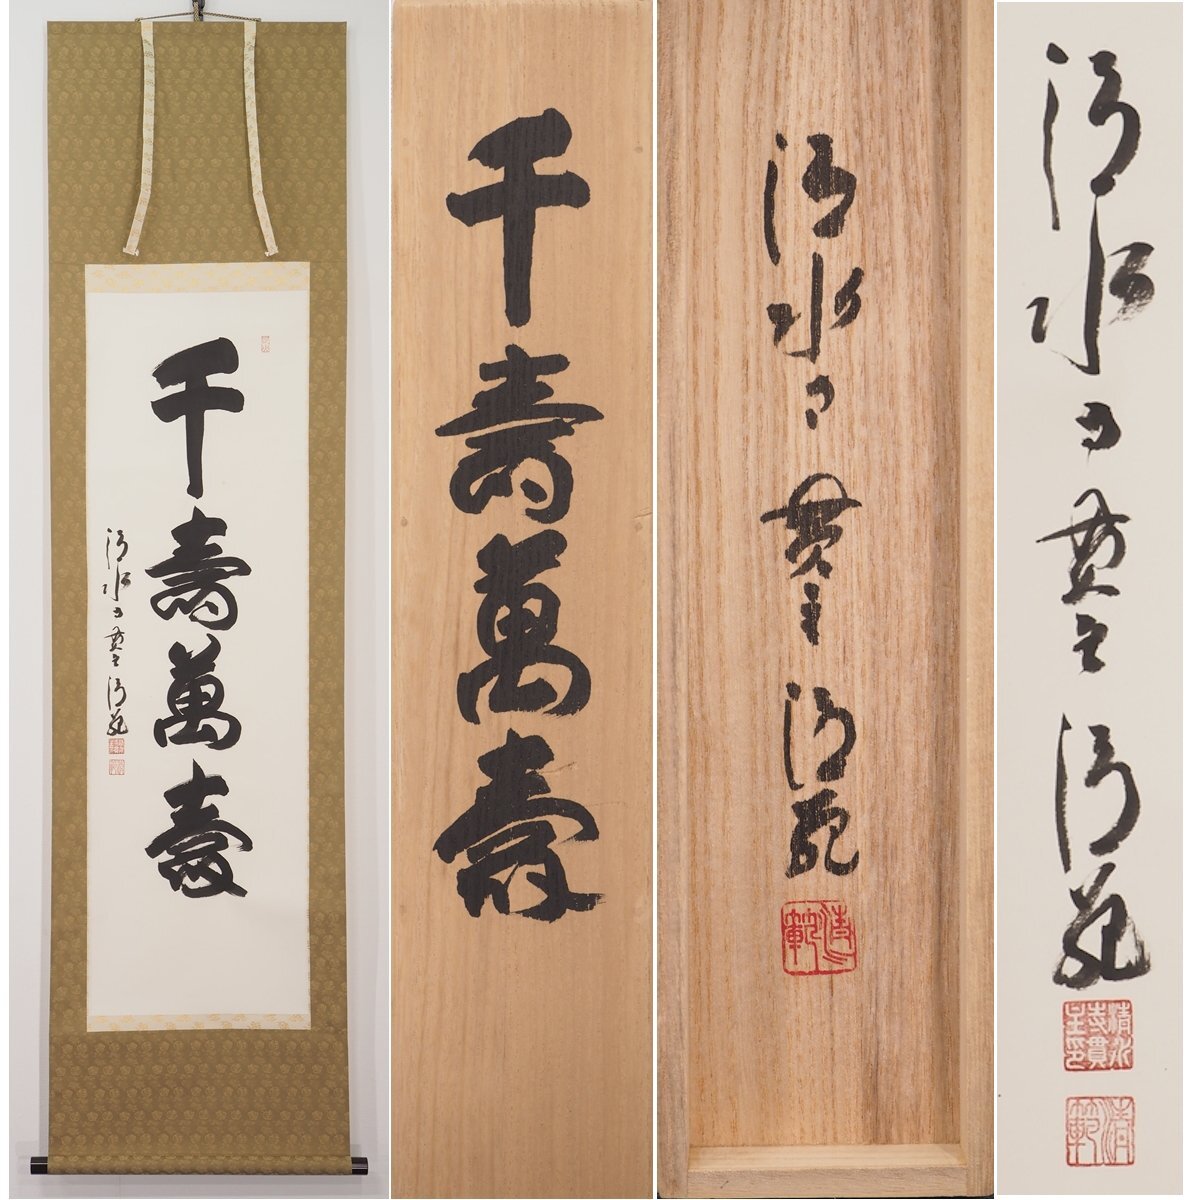 千壽萬壽
清水寺貫主 清範
千壽萬壽
清水寺貫主 清範
清範
清水寺貫主 清範
清水寺貫主印
清範